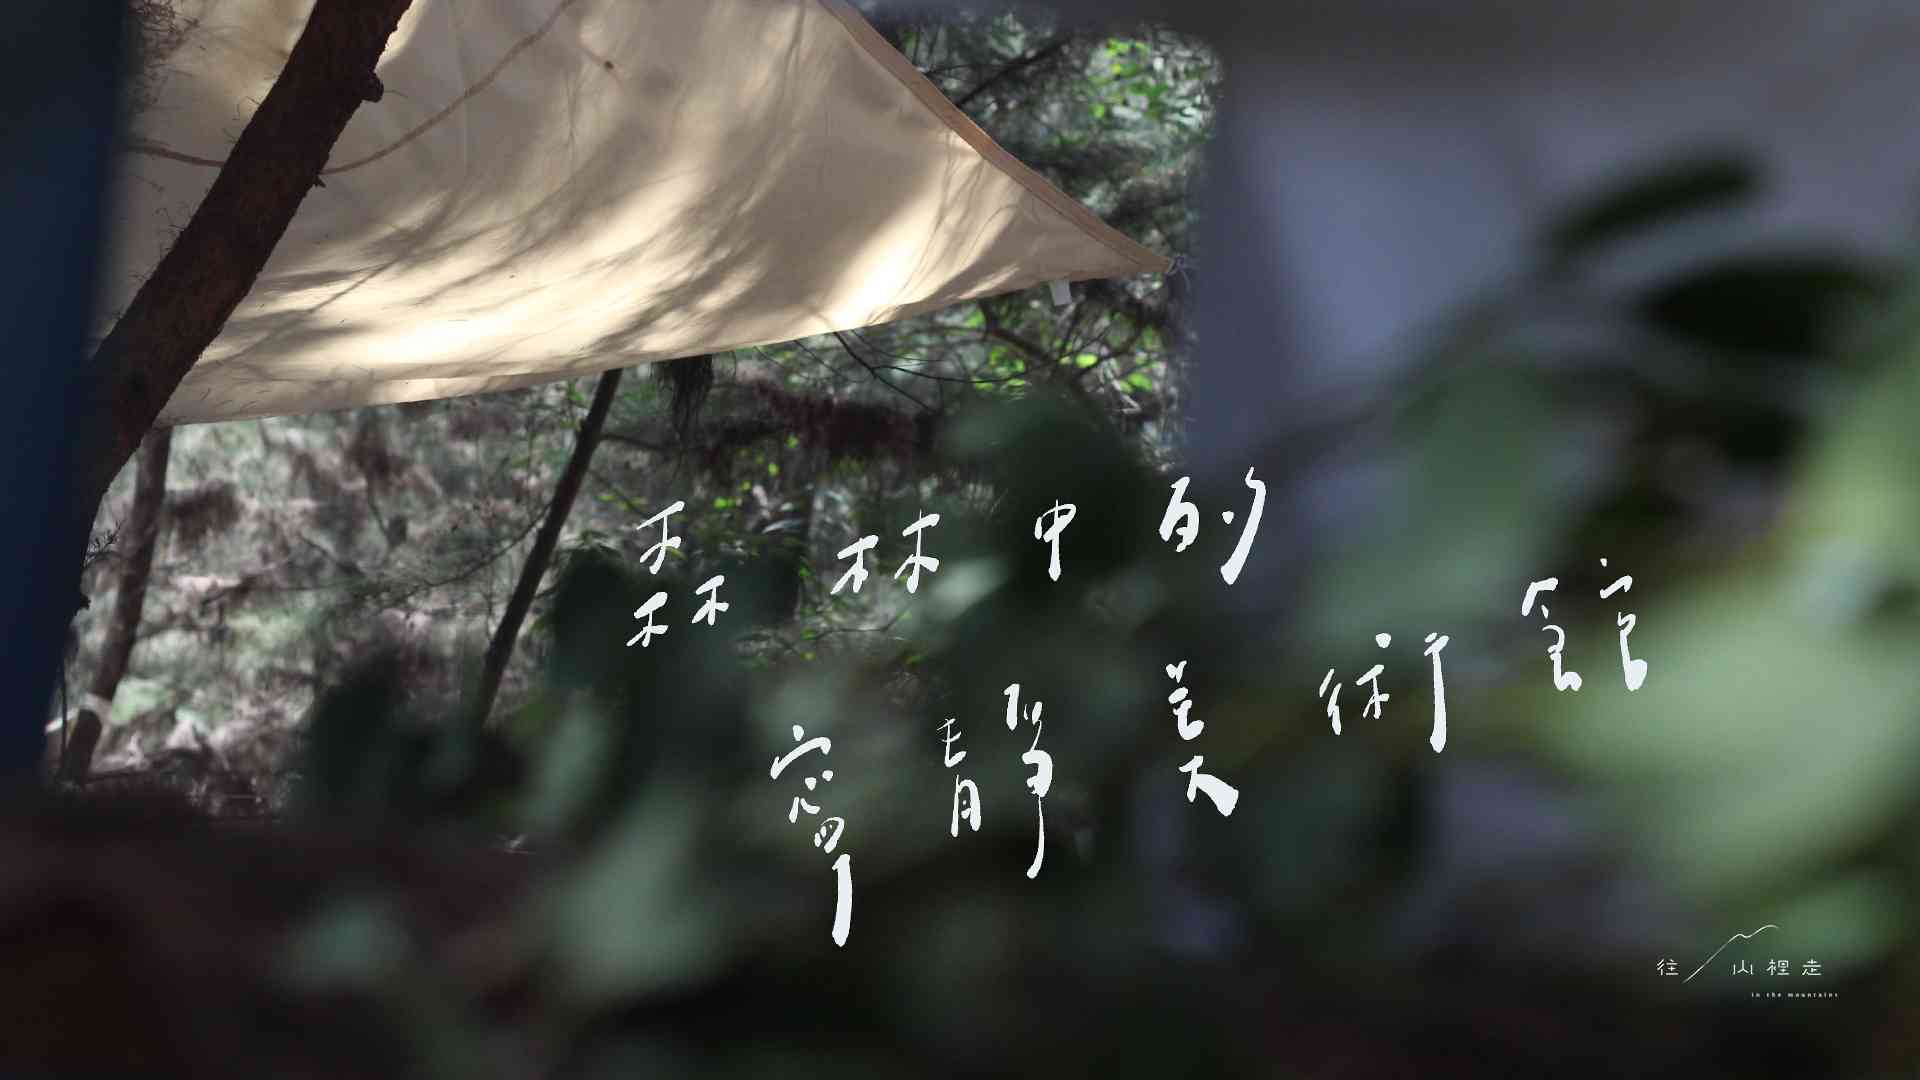 森林中的
寧靜美術館
往山裡走
in the mountains